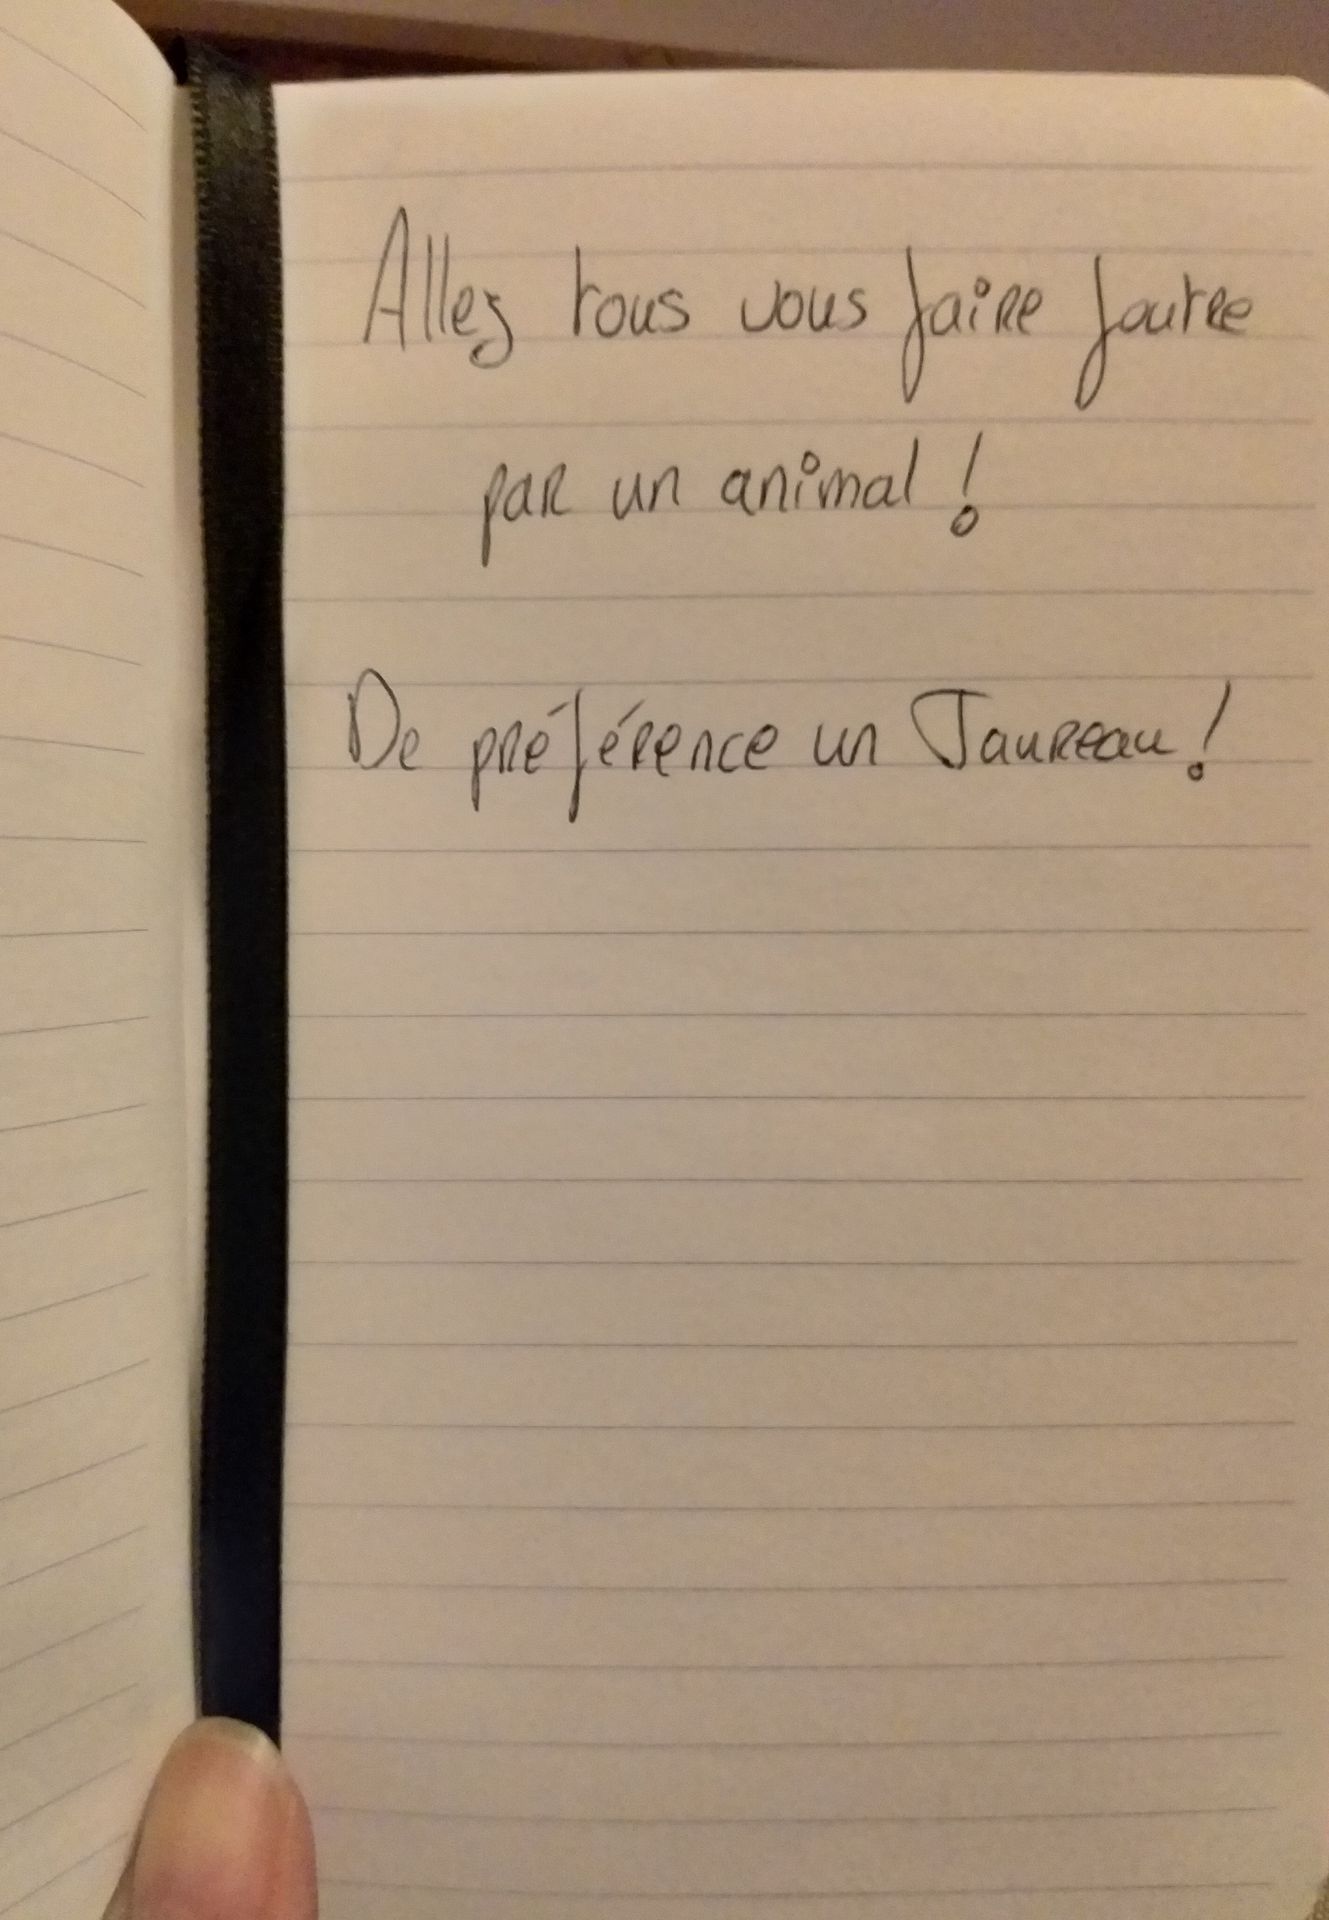 Allez tous vous faire foutre
par un animal !
De préférence un Taureau !